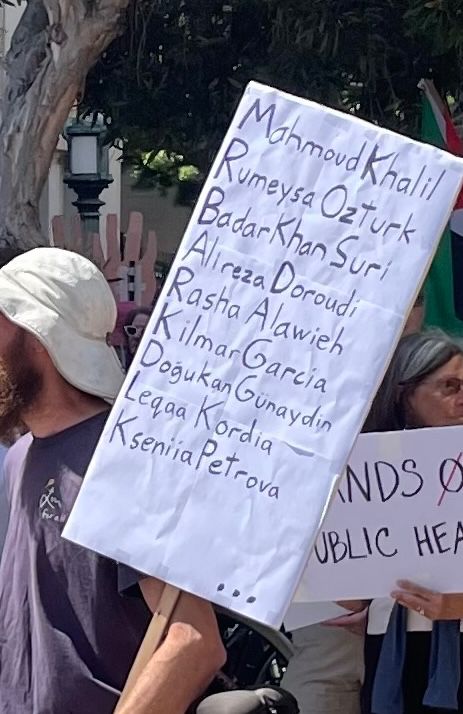 Mahmoud Khalil
Rumeysa Ozturk
Badar Khan Suri
Alireza Doroudi
Rasha Alawieh
Kilmar Garcia
Doğukan Günaydin
Leqaa Kordia
Kseniia Petrova
...
ANDS O
UBLIC HEA